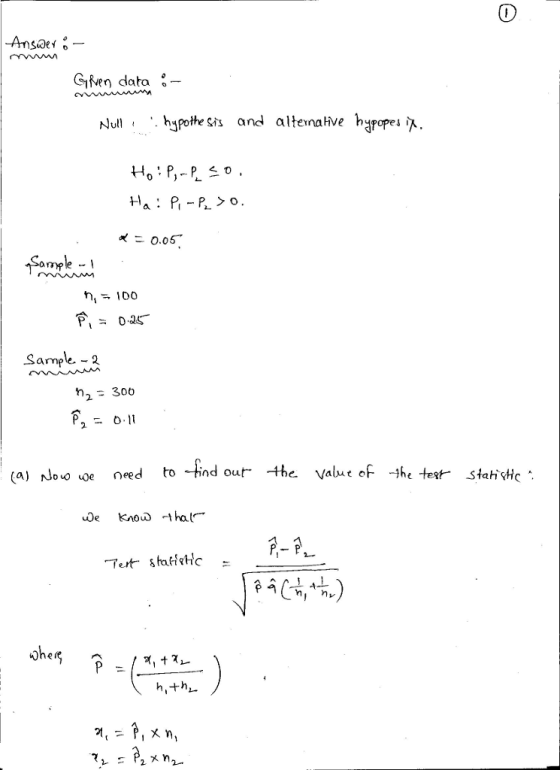 ①
Answer :-
Given data :-
Null hypothesis and alternative hypopesix.
H₀ : P₁ - P₂ ≤ 0.
Ha : P₁ - P₂ > 0.
α = 0.05.
Sample - 1
n₁ = 100
P̂₁ = 0.25
Sample - 2
n₂ = 300
P̂₂ = 0.11
(a) Now we need to find out the value of the test statistic :
we know that
Test statistic = (P̂₁ - P̂₂) / √(p̂ q̂ (1/n₁ + 1/n₂))
where, P̂ = ((x₁ + x₂) / (n₁ + n₂))
x₁ = P̂₁ × n₁
x₂ = P̂₂ × n₂